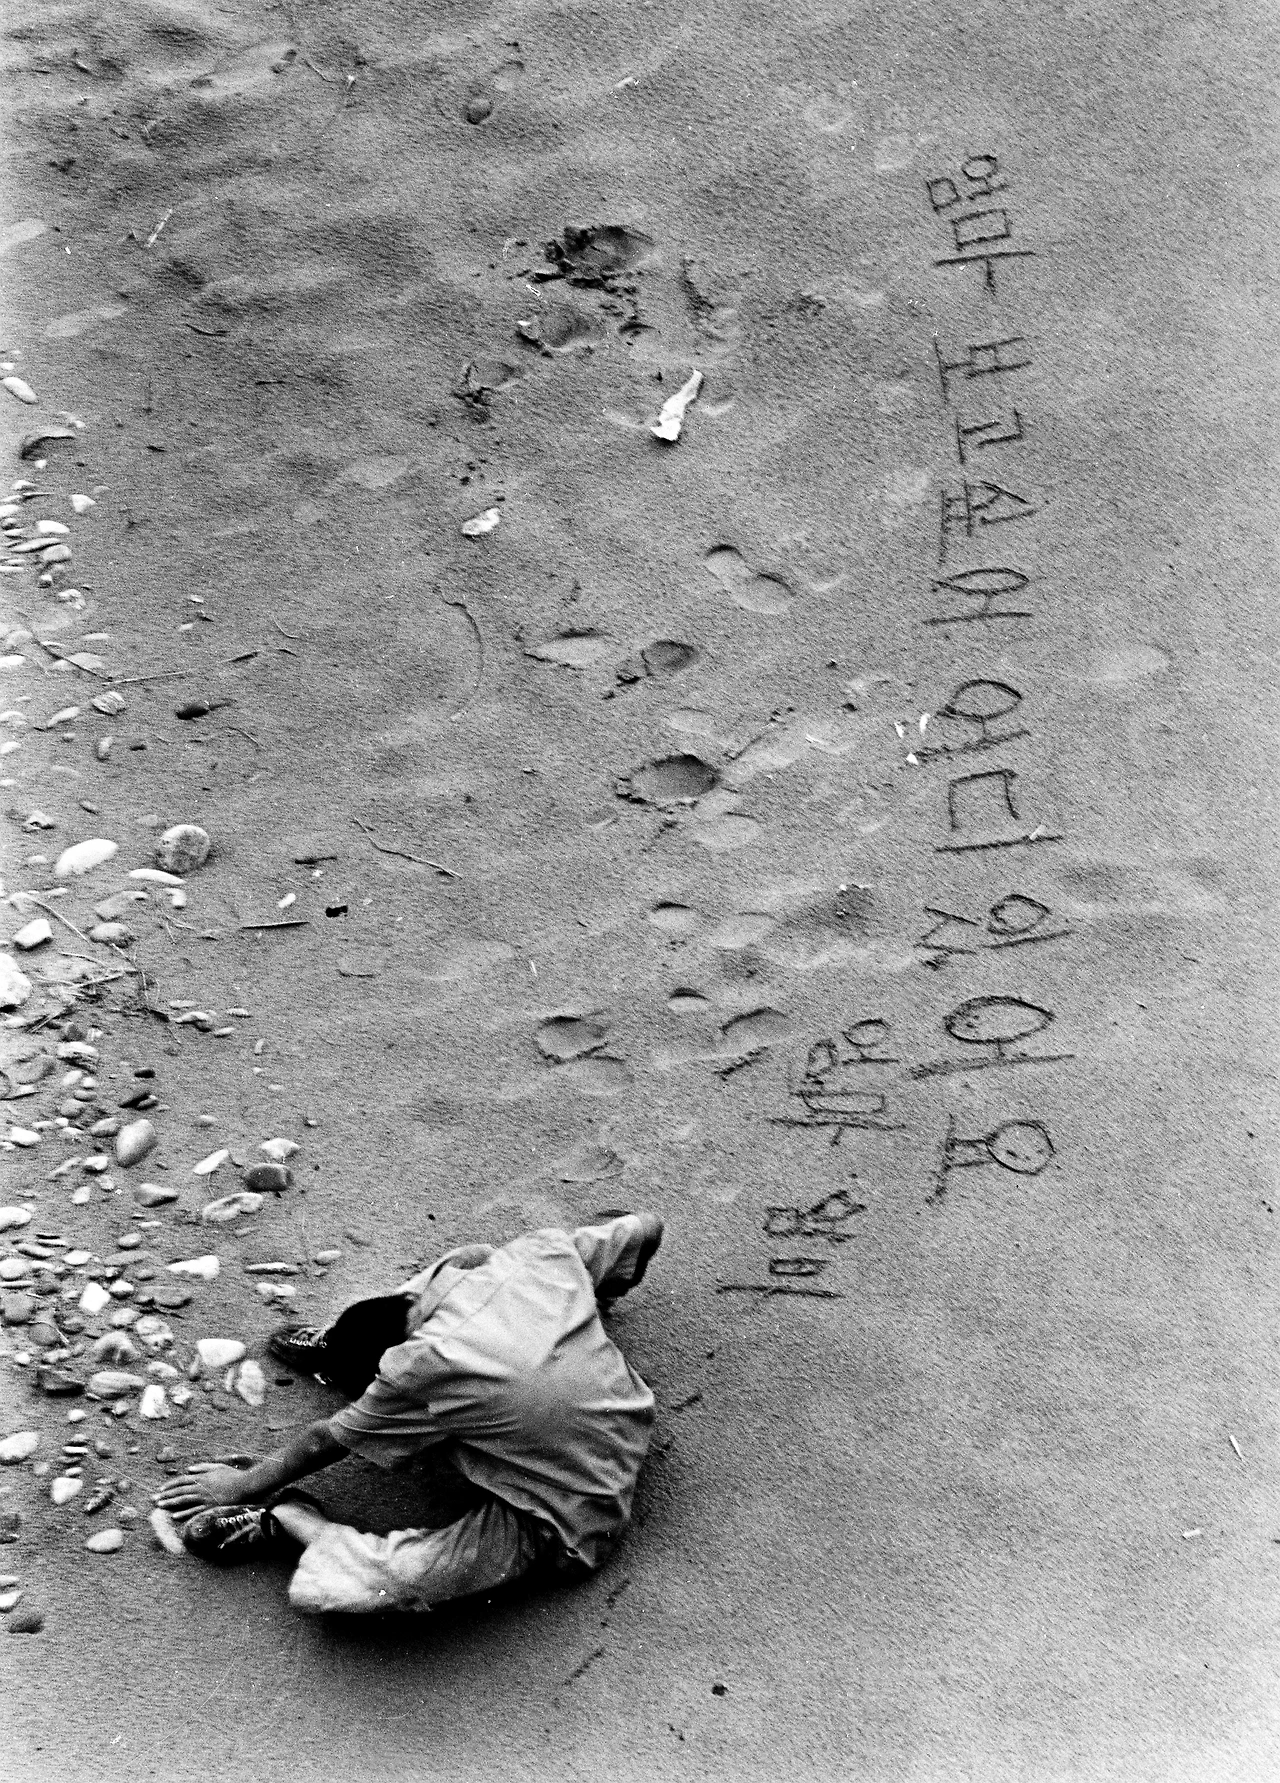 엄마 보고싶어 어디 있어요